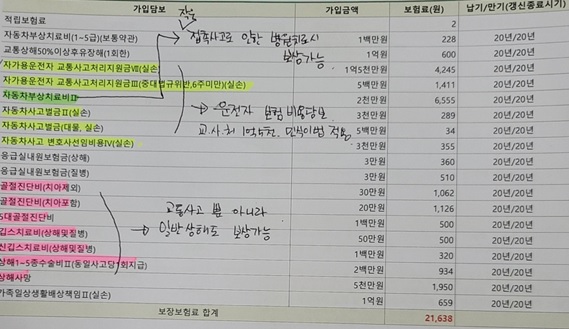 가입담보 가입금액 보험료(원) 납기/만기(갱신종료시기)
적립보험료 2
작은
자동차부상치료비(1~5급)(보통약관) 1백만원 228 20년/20년
접촉사고로 인한 병원치료시
교통상해50%이상후유장해(1회한) 1억원 600 20년/20년
보상가능
자가용운전자 교통사고처리지원금Ⅶ(실손) 1억5천만원 4,245 20년/20년
자가용운전자 교통사고처리지원금Ⅲ(중대법규위반,6주미만)(실손) 5백만원 1,411 20년/20년
자동차부상치료비Ⅱ 2천만원 6,555 20년/20년
자동차사고벌금Ⅱ(실손) 3천만원 289 20년/20년
운전자 보험 비용담보
자동차사고벌금(대물, 실손) 5백만원 34 20년/20년
교사처 1억5천, 민식이법 적용
자동차사고 변호사선임비용Ⅳ(실손) 3천만원 355 20년/20년
응급실내원보험금(상해) 3만원 360 20년/20년
응급실내원보험금(질병) 3만원 510 20년/20년
골절진단비(치아제외) 30만원 1,062 20년/20년
골절진단비(치아포함) 20만원 1,126 20년/20년
교통사고 뿐 아니라
5대골절진단비 1백만원 500 20년/20년
일반상해도 보상가능
깁스치료비(상해및질병) 50만원 500 20년/20년
신깁스치료비(상해및질병) 1백만원 320 20년/20년
상해1~5종수술비Ⅱ(동일사고당1회지급) 2백만원 934 20년/20년
상해사망 5천만원 1,950 20년/20년
가족일상생활배상책임Ⅱ(실손) 1억원 659 20년/20년
보장보험료 합계 21,638